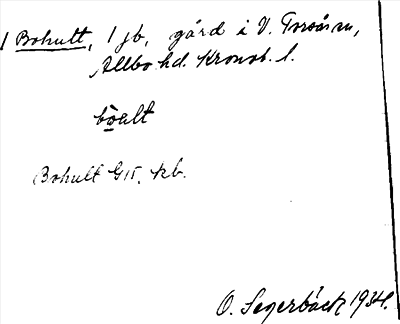 1 Bohult, 1 jb, gård i V. Torsås sn,
Allbo hd. Kronob. l.
bo̤alt
Bohult G15, kb.
O. Segerbäck 1934.